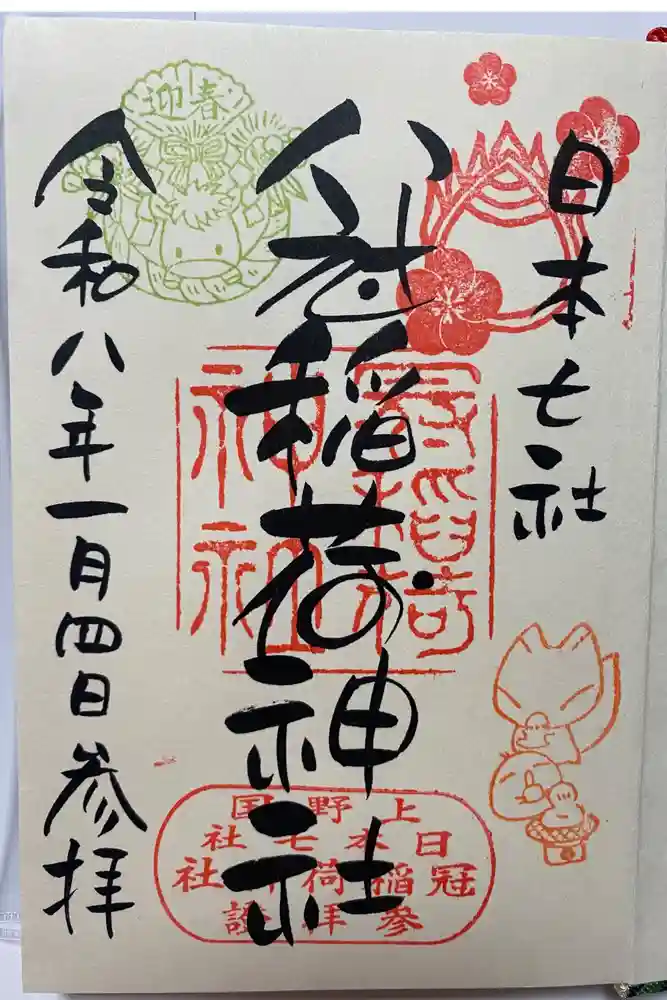 日本七社
冠稲荷神社
令和八年一月四日参拝
迎春
冠稲荷
神社
上野国
日本七社
冠稲荷神社
參拝證